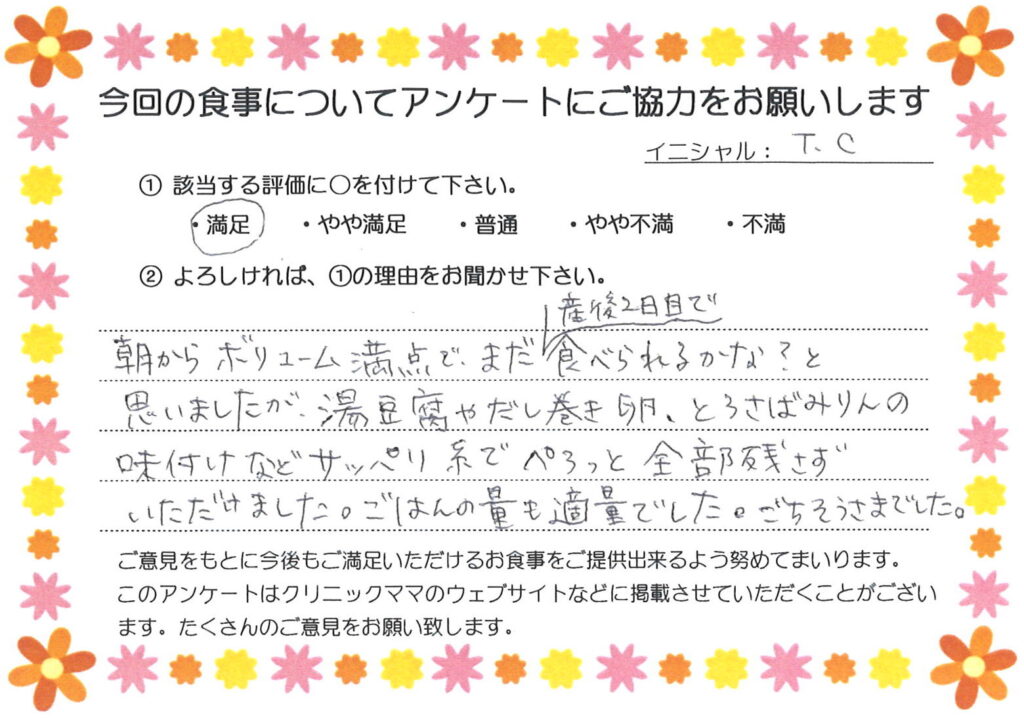 今回の食事についてアンケートにご協力をお願いします
イニシャル： T. C
① 該当する評価に〇を付けて下さい。
・満足 ・やや満足 ・普通 ・やや不満 ・不満
② よろしければ、①の理由をお聞かせ下さい。
産後2日目で
朝からボリューム満点で、まだ食べられるかな？と
思いましたが、湯豆腐やだし巻き卵、とろさばみりんの
味付けなどサッパリ系でぺろっと全部残さず
いただけました。ごはんの量も適量でした。ごちそうさまでした。
ご意見をもとに今後もご満足いただけるお食事をご提供出来るよう努めてまいります。
このアンケートはクリニックママのウェブサイトなどに掲載させていただくことがござい
ます。たくさんのご意見をお願い致します。